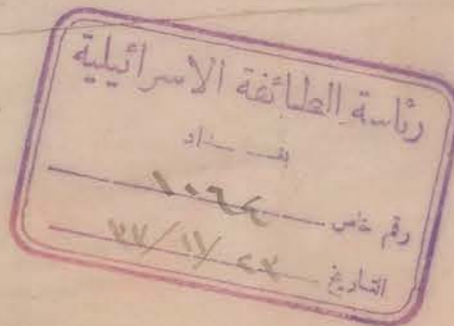 رئاسة الطائفة الاسرائيلية
بغداد
رقم خاص ١٠٦٤
التاريخ